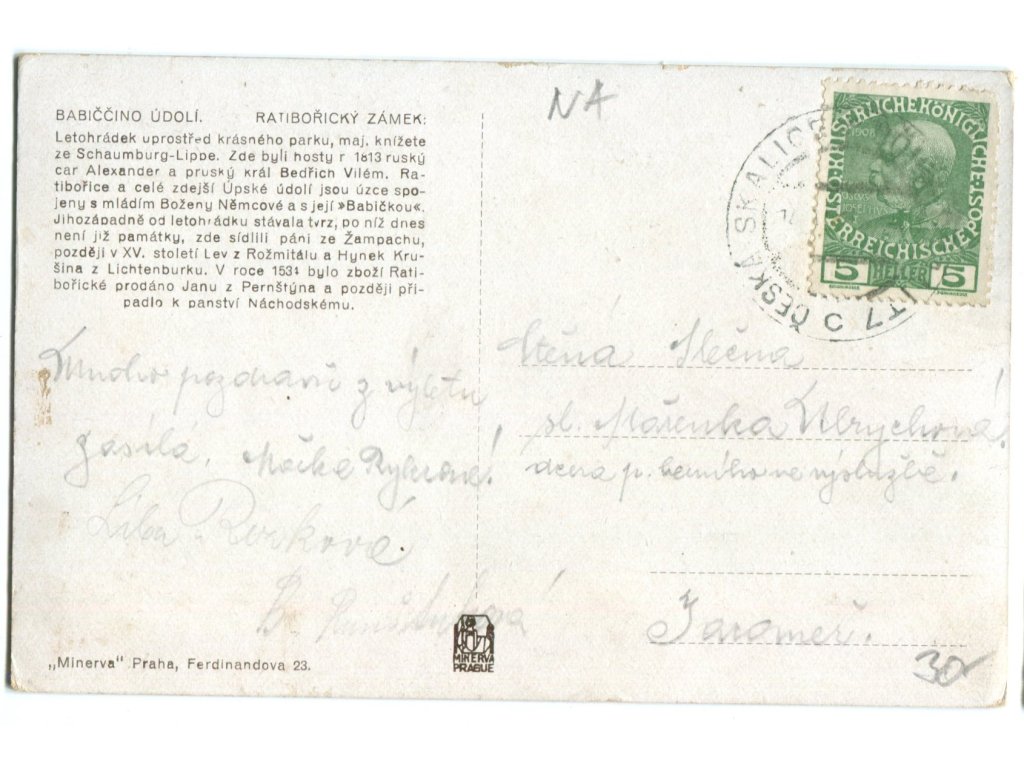 NA
BABIČČINO ÚDOLÍ. RATIBOŘICKÝ ZÁMEK:
Letohrádek uprostřed krásného parku, maj. knížete
ze Schaumburg-Lippe. Zde byli hosty r 1813 ruský
car Alexander a pruský král Bedřich Vilém. Ra-
tibořice a celé zdejší Úpské údolí jsou úzce spo-
jeny s mládím Boženy Němcové a s její »Babičkou«.
Jihozápadně od letohrádku stávala tvrz, po níž dnes
není již památky, zde sídlili páni ze Žampachu,
později v XV. století Lev z Rožmitálu a Hynek Kru-
šina z Lichtenburku. V roce 1534 bylo zboží Rati-
bořické prodáno Janu z Pernštýna a později při-
padlo k panství Náchodskému.
Mnoho pozdravů z výletu
zasílá. Mačka
Liba
"Minerva" Praha, Ferdinandova 23.
MINERVA
PRAGUE
KAISERLICHE KÖNIGLICHE
ÖSTERREICHISCHE POST
1908
5 HELLER 5
ČESKÁ SKALICE
Ctěná Slečna
sl. Mařenka Ulrychová!
dcera p. berního ve výslužbě.
Jaroměř.
30